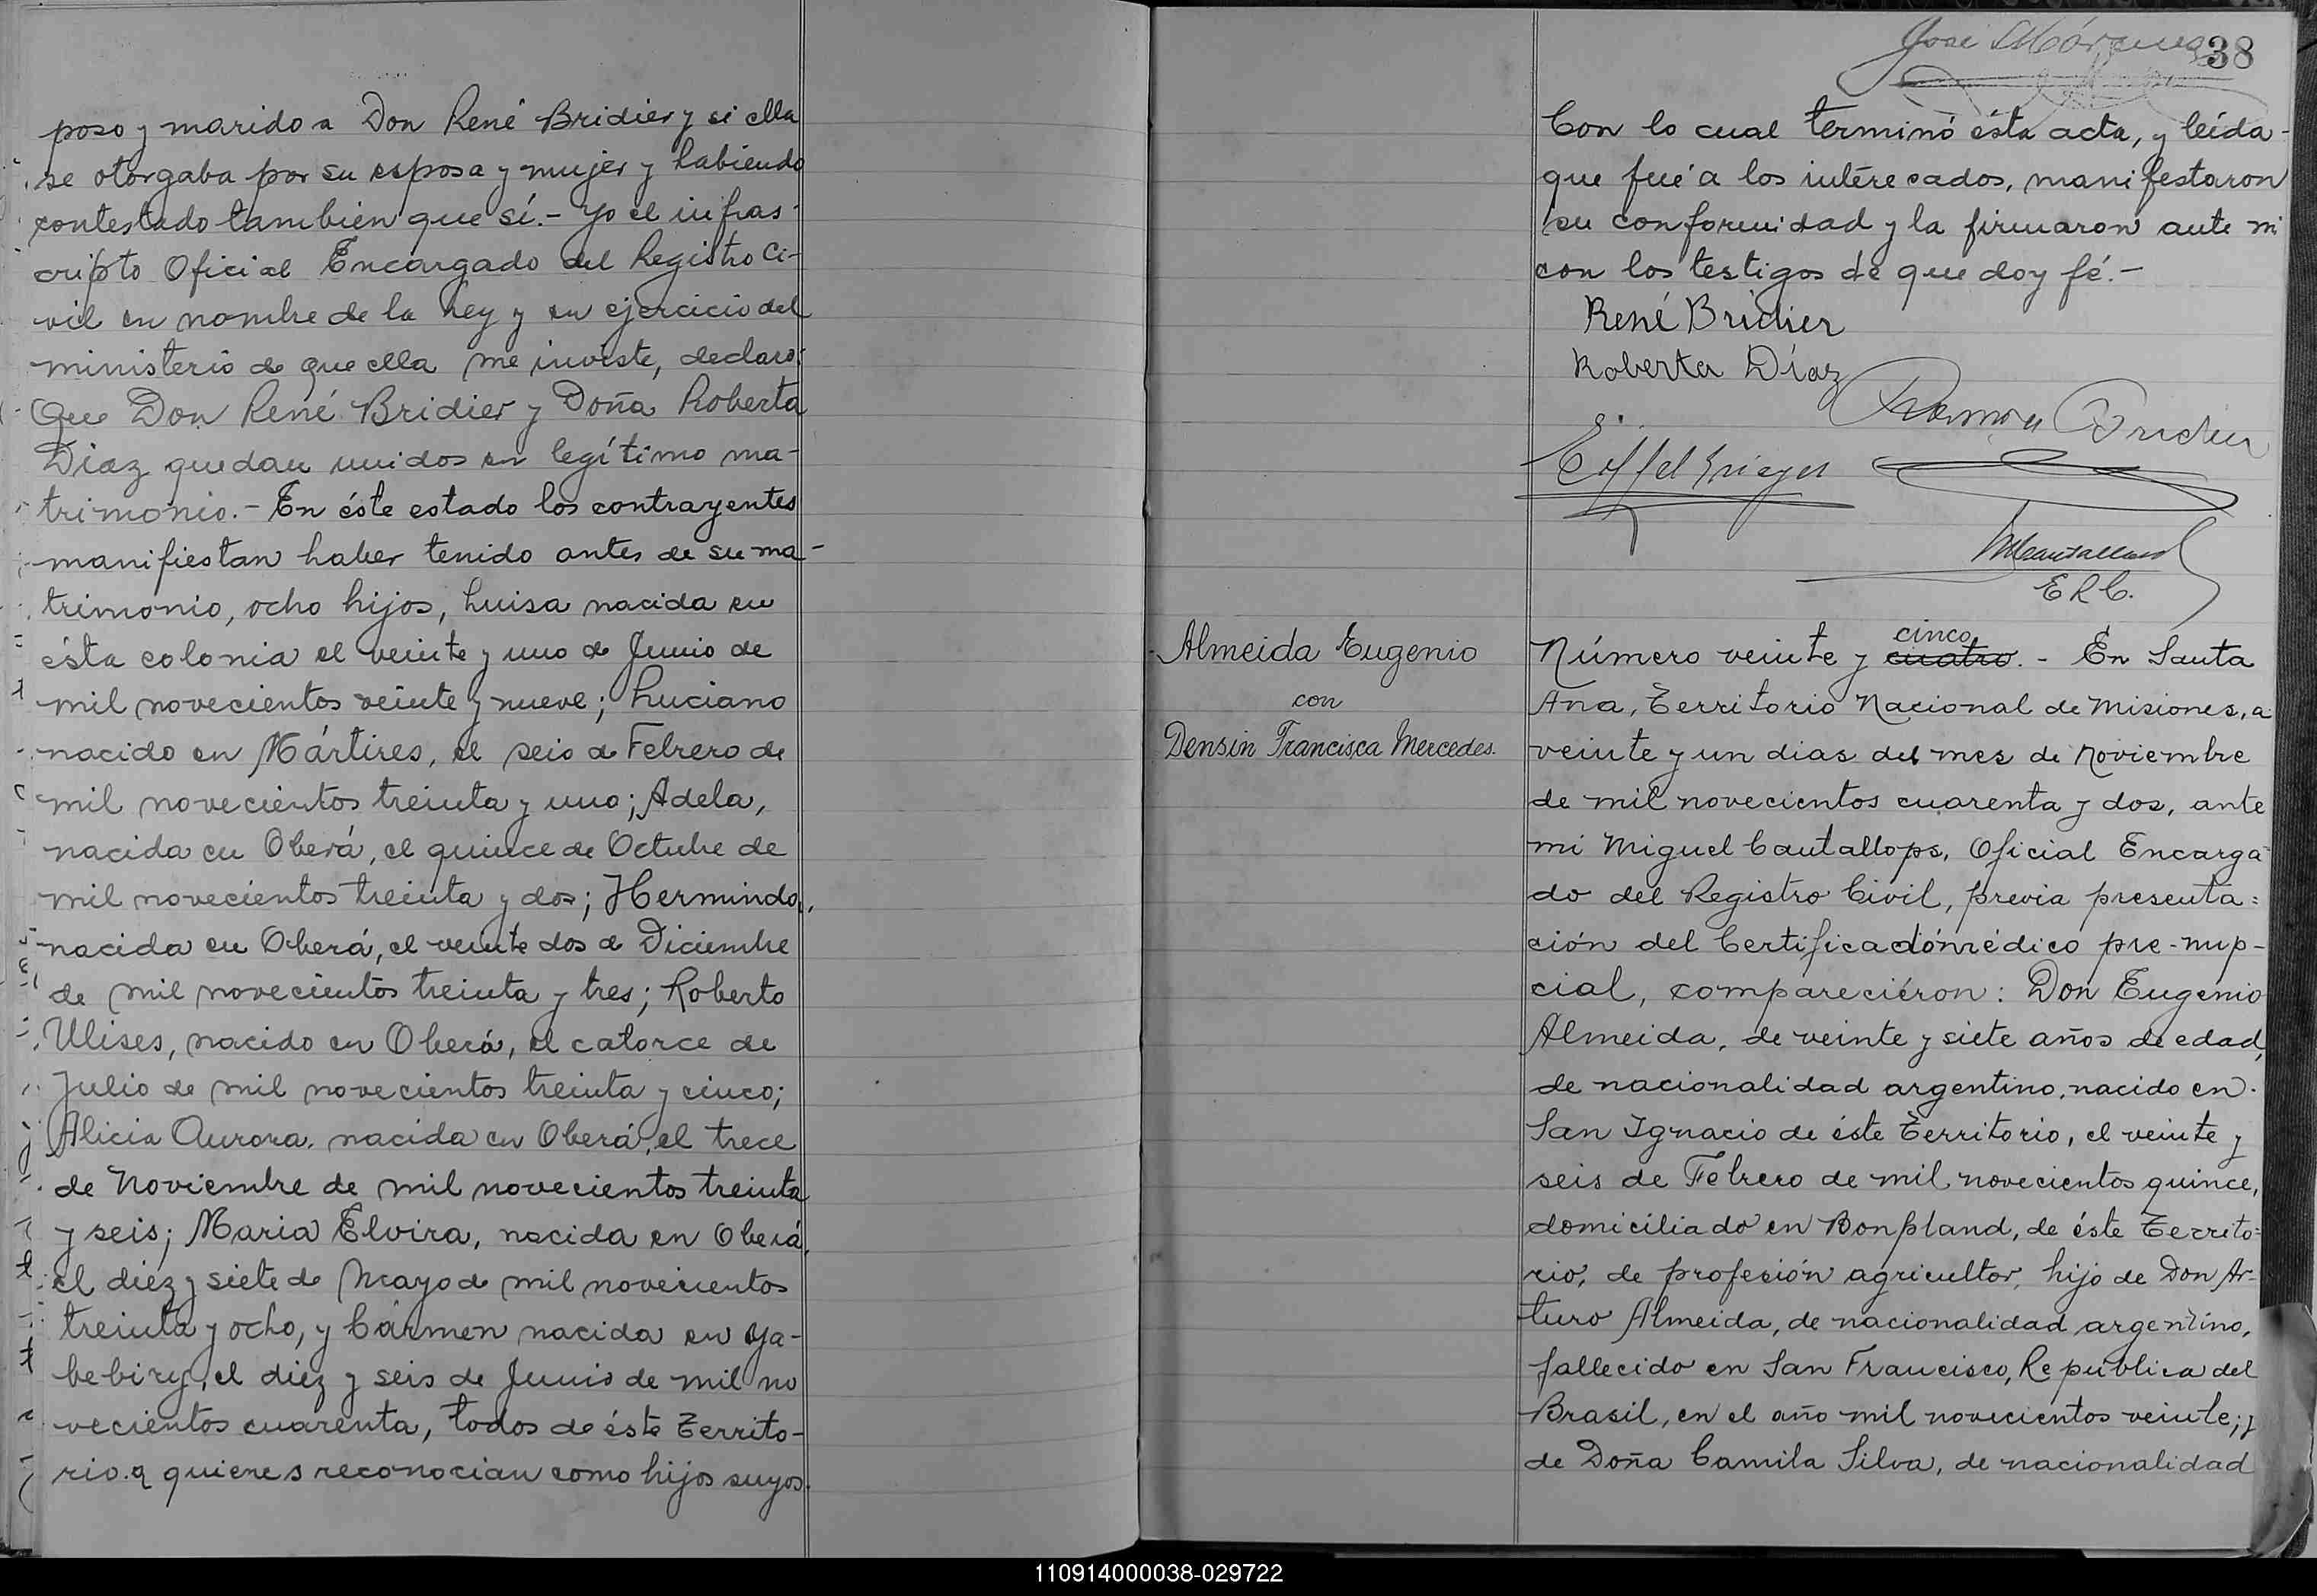 poso y marido a Don René Bridier y si ella
se otorgaba por su esposa y mujer y habiendo
contestado tambien que sí.- Yo el infras-
cripto Oficial Encargado del Registro Ci-
vil en nombre de la Ley y en ejercicio del
ministerio de que ella me inviste, declaro:
Que Don René Bridier y Doña Roberta
Diaz quedan unidos en legítimo ma-
trimonio.- En éste estado los contrayentes
manifiestan haber tenido antes de su ma-
trimonio, ocho hijos, Luisa nacida en
ésta colonia el veinte y uno de Junio de
mil novecientos veinte y nueve; Luciano
nacido en Mártires, el seis de Febrero de
mil novecientos treinta y uno; Adela,
nacida en Oberá, el quince de Octubre de
mil novecientos treinta y dos; Herminda,
nacida en Oberá, el veinte dos de Diciembre
de mil novecientos treinta y tres; Roberto
Ulises, nacido en Oberá, el catorce de
Julio de mil novecientos treinta y cinco;
Alicia Aurora, nacida en Oberá, el trece
de Noviembre de mil novecientos treinta
y seis; Maria Elvira, nacida en Oberá,
el diez y siete de Mayo de mil novecientos
treinta y ocho, y Cármen nacida en Ya-
bebiry, el diez y seis de Junio de mil no
vecientos cuarenta, todos de éste Territo-
rio. a quienes reconocian como hijos suyos.
José
38
Con lo cual terminó ésta acta, y leída
que fué a los interecados, manifestaron
su conformidad y la firmaron ante mi
con los testigos de que doy fé.-
René Bridier
Roberta Díaz
Ramon Bridier
Eiffel
ERC.
Almeida Eugenio
con
Densin Francisca Mercedes.
cinco
Número veinte y cuatro.- En Santa
Ana, Territorio Nacional de Misiones, a
veinte y un dias del mes de Noviembre
de mil novecientos cuarenta y dos, ante
mi Miguel Cantallops, Oficial Encarga-
do del Registro Civil, previa presenta=
ción del Certificado médico pre-nup-
cial, compareciéron: Don Eugenio
Almeida, de veinte y siete años de edad,
de nacionalidad argentino, nacido en
San Ignacio de éste Territorio, el veinte y
seis de Febrero de mil novecientos quince,
domiciliado en Bonpland, de éste Territo=
rio, de profesión agricultor, hijo de Don Ar-
turo Almeida, de nacionalidad argentino,
fallecido en San Francisco, Republica del
Brasil, en el año mil novecientos veinte; y
de Doña Camila Silva, de nacionalidad
110914000038-029722